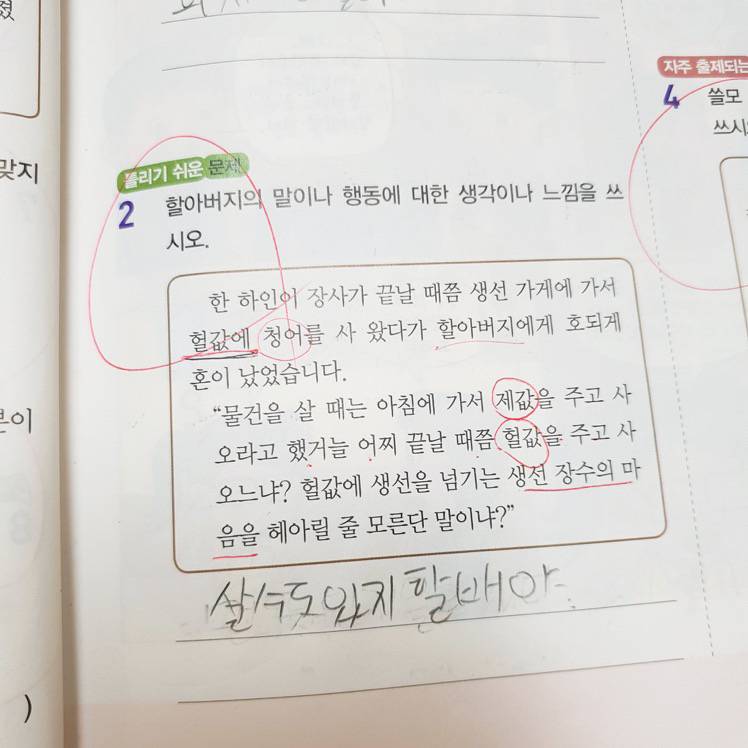 졌
맞지
분이
)
틀리기 쉬운 문제
2 할아버지의 말이나 행동에 대한 생각이나 느낌을 쓰
시오.
한 하인이 장사가 끝날 때쯤 생선 가게에 가서
헐값에 청어를 사 왔다가 할아버지에게 호되게
혼이 났었습니다.
“물건을 살 때는 아침에 가서 제값을 주고 사
오라고 했거늘 어찌 끝날 때쯤 헐값을 주고 사
오느냐? 헐값에 생선을 넘기는 생선 장수의 마
음을 헤아릴 줄 모른단 말이냐?”
살수도 있지 할배야.
자주 출제되는
4 쓸모
쓰시